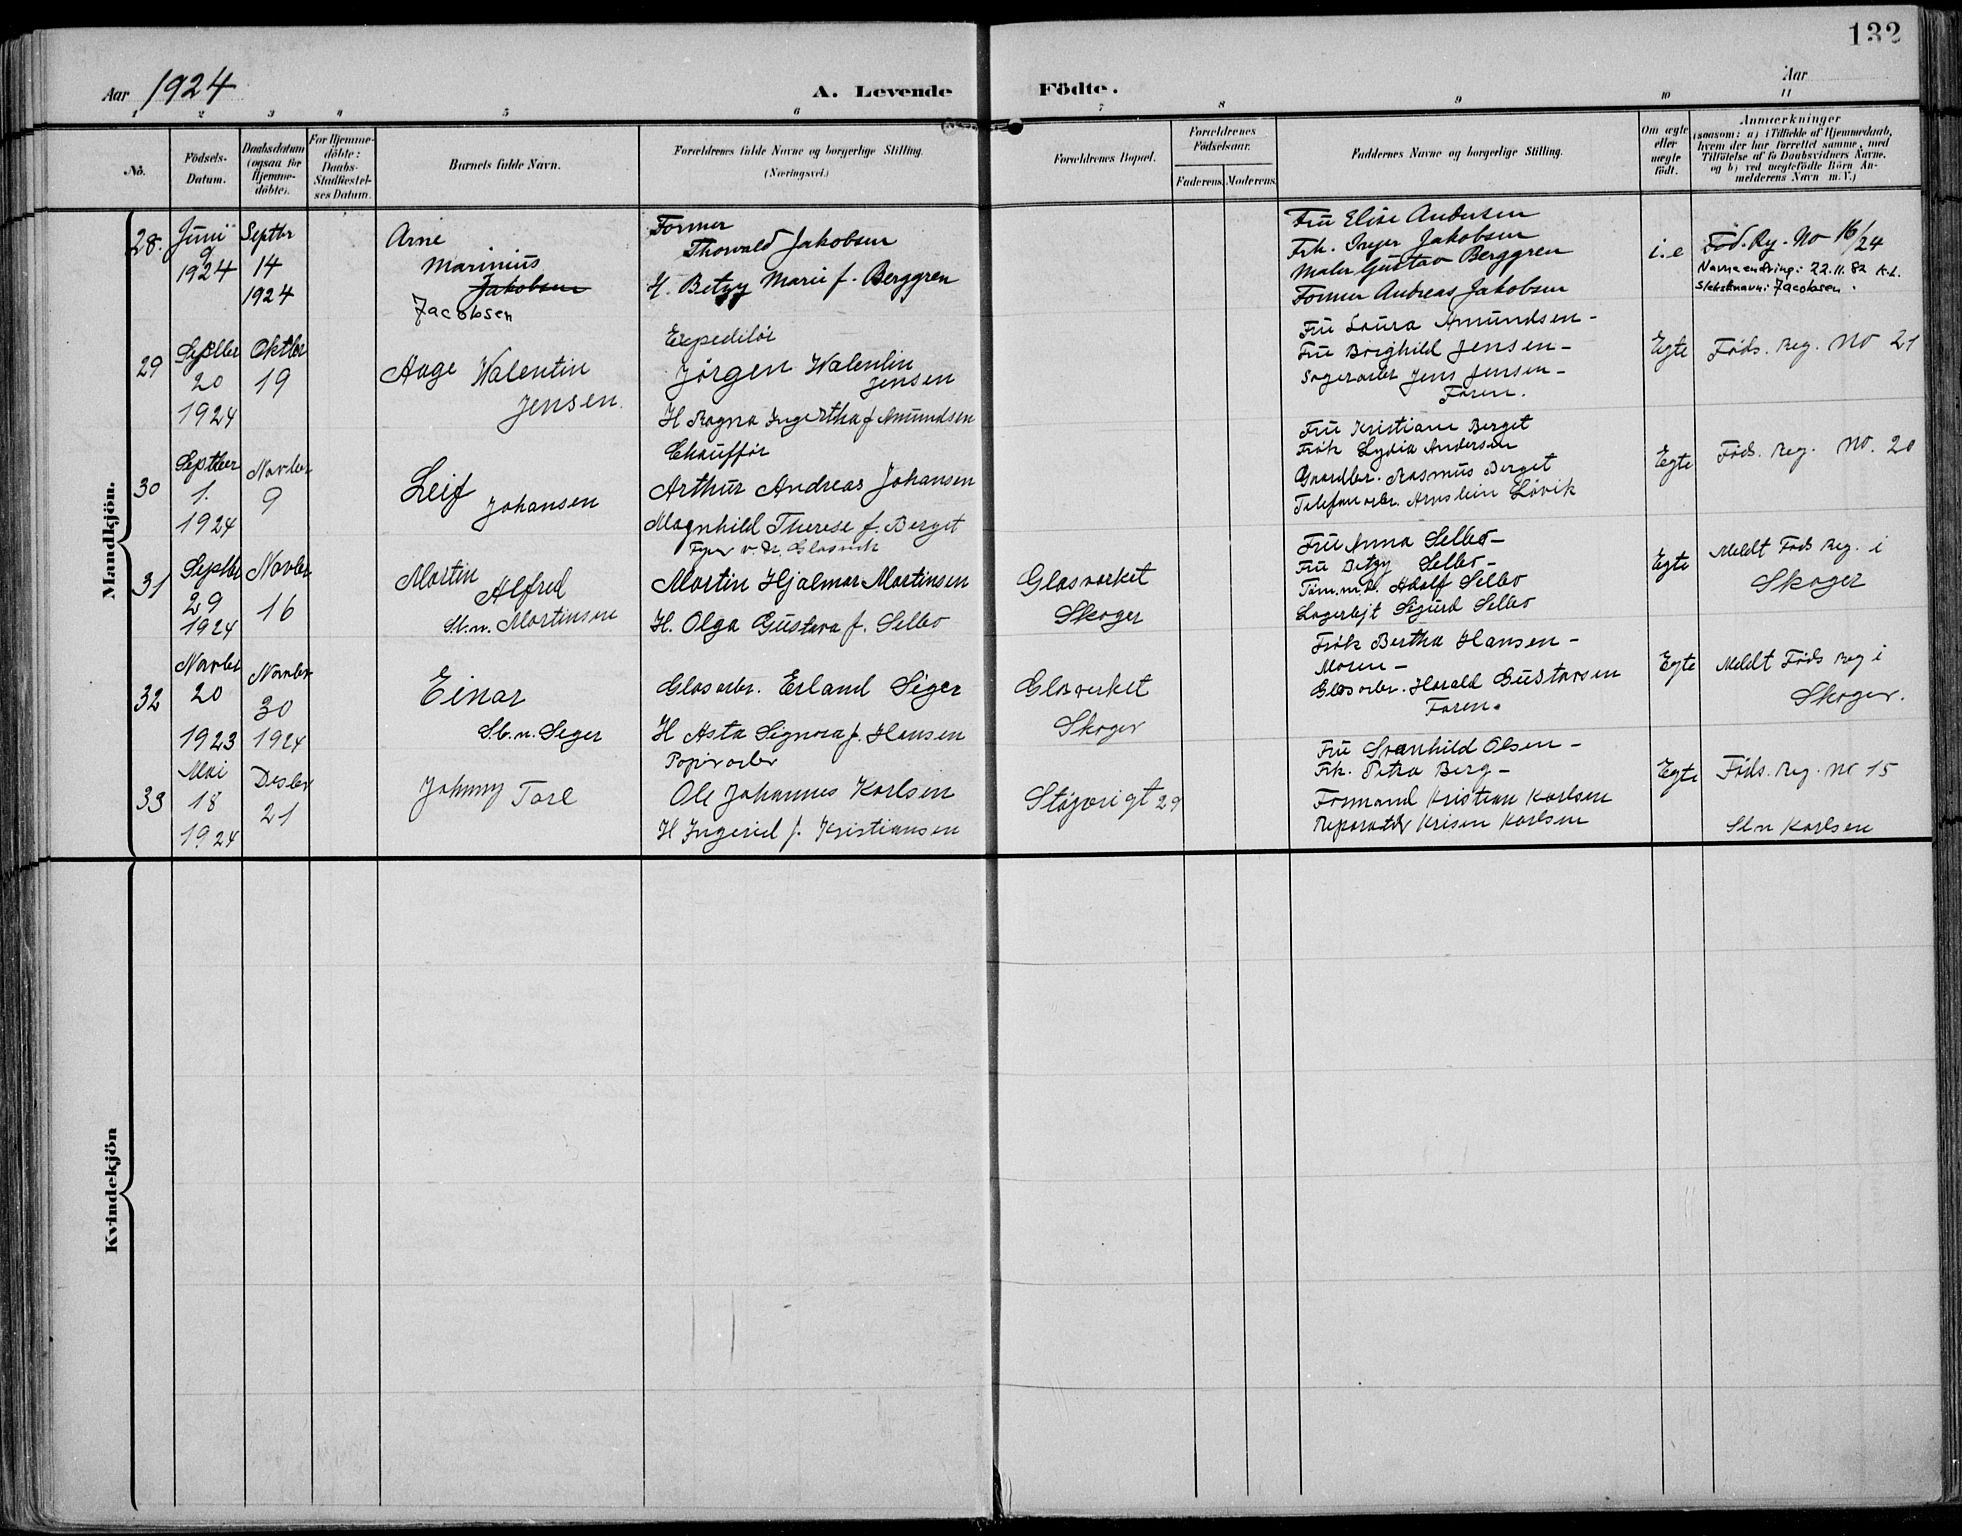 132
Aar 1924
A. Levende Födte.
Aar
1 2 3 4 5 6 7 8 9 10 11
No.
Födsels-
Datum.
Daabsdatum
(ogsaa for
Hjemme-
döbte).
For Hjemme-
döbte:
Daabs-
Stadfæstel-
ses Datum.
Barnets fulde Navn.
Forældrenes fulde Navne og borgerlige Stilling.
(Næringsvei.)
Forældrenes Bopæl.
Forældrenes
Födselsaar.
Faderens. Moderens.
Faddernes Navne og borgerlige Stilling.
Om ægte
eller
uægte
födt.
Anmærkninger
(saasom: a) i Tilfælde af Hjemmedaab,
hvem der har forrettet samme, med
Tilföielse af to Daabsvidners Navne,
og b) ved uægtefödte Börn An-
melderens Navn m. V.)
Mandkjön.
28.
Juni
9
1924
Septbr
14
1924
Arne
Marinius
Jakobsen
Jacobsen
Former
Thorvald Jakobsen
H. Betzy Marie f. Berggren
Fru Elise Andersen
Frk. Inger Jakobsen
Maler Gustav Berggren
Former Andreas Jakobsen
i.e
Föd. Rg. No 16/24
Navneendring: 22.11.82 K.L.
Slektsnavn: Jacobsen.
29
Septber
20
1924
Oktber
19
Aage Walentin
Jensen.
Expeditör
Jørgen Walentin
Jensen
H Ragna Ingertha f Amundsen
Fru Laura Amundsen -
Fru Borghild Jensen -
Jens Jensen -
Faren.
Egte
Føds. Reg. No 21
30
Septber
1.
1924
Novber
9
Leif
Johansen
Chauffør
Arthur Andreas Johansen
Magnhild Therese f. Berget
Fru Kristiane Berget
Frøk Lydia Andersen
Gaardbr. Rasmus Berget
Telefonarbr. Arnstein Løvik
Egte
Føds. Reg. No. 20
31
Septbr
29
1924
Novber
16
Martin
Alfred
Sl.n. Martinsen
Martin Hjalmar Martinsen
H. Olga Gustava f. Selbo
Glasverket
Skoger
Fru Anna Selbo -
Fru Betzy Selbo -
Adolf Selbo
Lagerbejt Sigurd Selbo
Egte
Meldt Føds Reg. i
Skoger
32
Novber
20
1923
Novber
30
1924
Einar
Sl.n. Seger
Glasarbr. Erland Seger
H Asta Signora f. Hansen
Glasverket
Skoger
Frøk Bertha Hansen -
Moren -
Glasarbr. Harald Gustavsen
Faren.
Egte
Meldt Føds Reg i
Skoger.
33
Mai
18
1924
Desbr
21
Johnny Tore
Papirarbr
Ole Johannes Karlsen
H Ingerid f. Kristiansen
Støperigt 29
Fru Svanhild Olsen -
Frk. Petra Berg -
Formand Kristian Karlsen
Reparatör Karlsen
Egte
Føds. Reg. No 15
Sl.n Karlsen
Kvindekjön